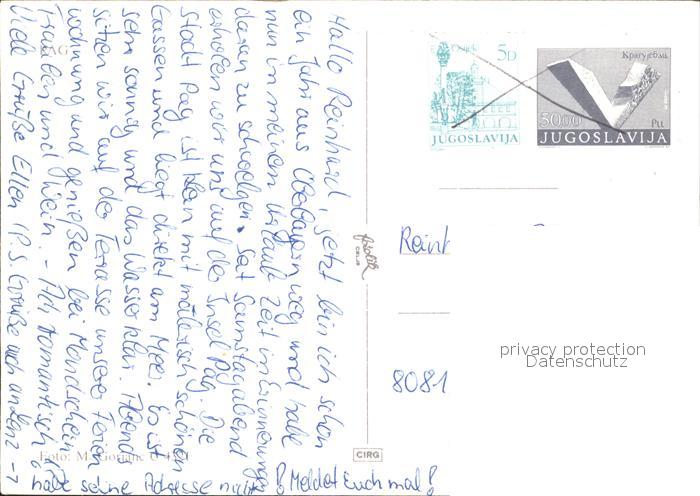 Hallo Reinhard, jetzt bin ich schon
ein Jahr aus Oberbayern weg und habe
nun in meinem Urlaub Zeit in Erinnerungen
daran zu schwelgen. Seit Samstagabend
erholen wir uns auf der Insel Pag. Die
Stadt Pag ist klein mit malerisch schönen
Gassen und liegt direkt am Meer. Es ist
sehr sonnig und das Wasser klar. Abends
sitzen wir auf der Terrasse unserer Ferien
wohnung und genießen bei Mondschein
Trauben und Wein. - Ach romantisch!
Viele Grüße Ellen (P.S. Grüße auch an Lenz →
habe seine Adresse nicht! Meldet Euch mal!
PAG
Foto: M. Gorjanc
fotolik
CELJE
CIRG
Osijek 5D
JUGOSLAVIJA
Крагујевац
5000 Din
JUGOSLAVIJA
Reinh
8081
privacy protection
Datenschutz